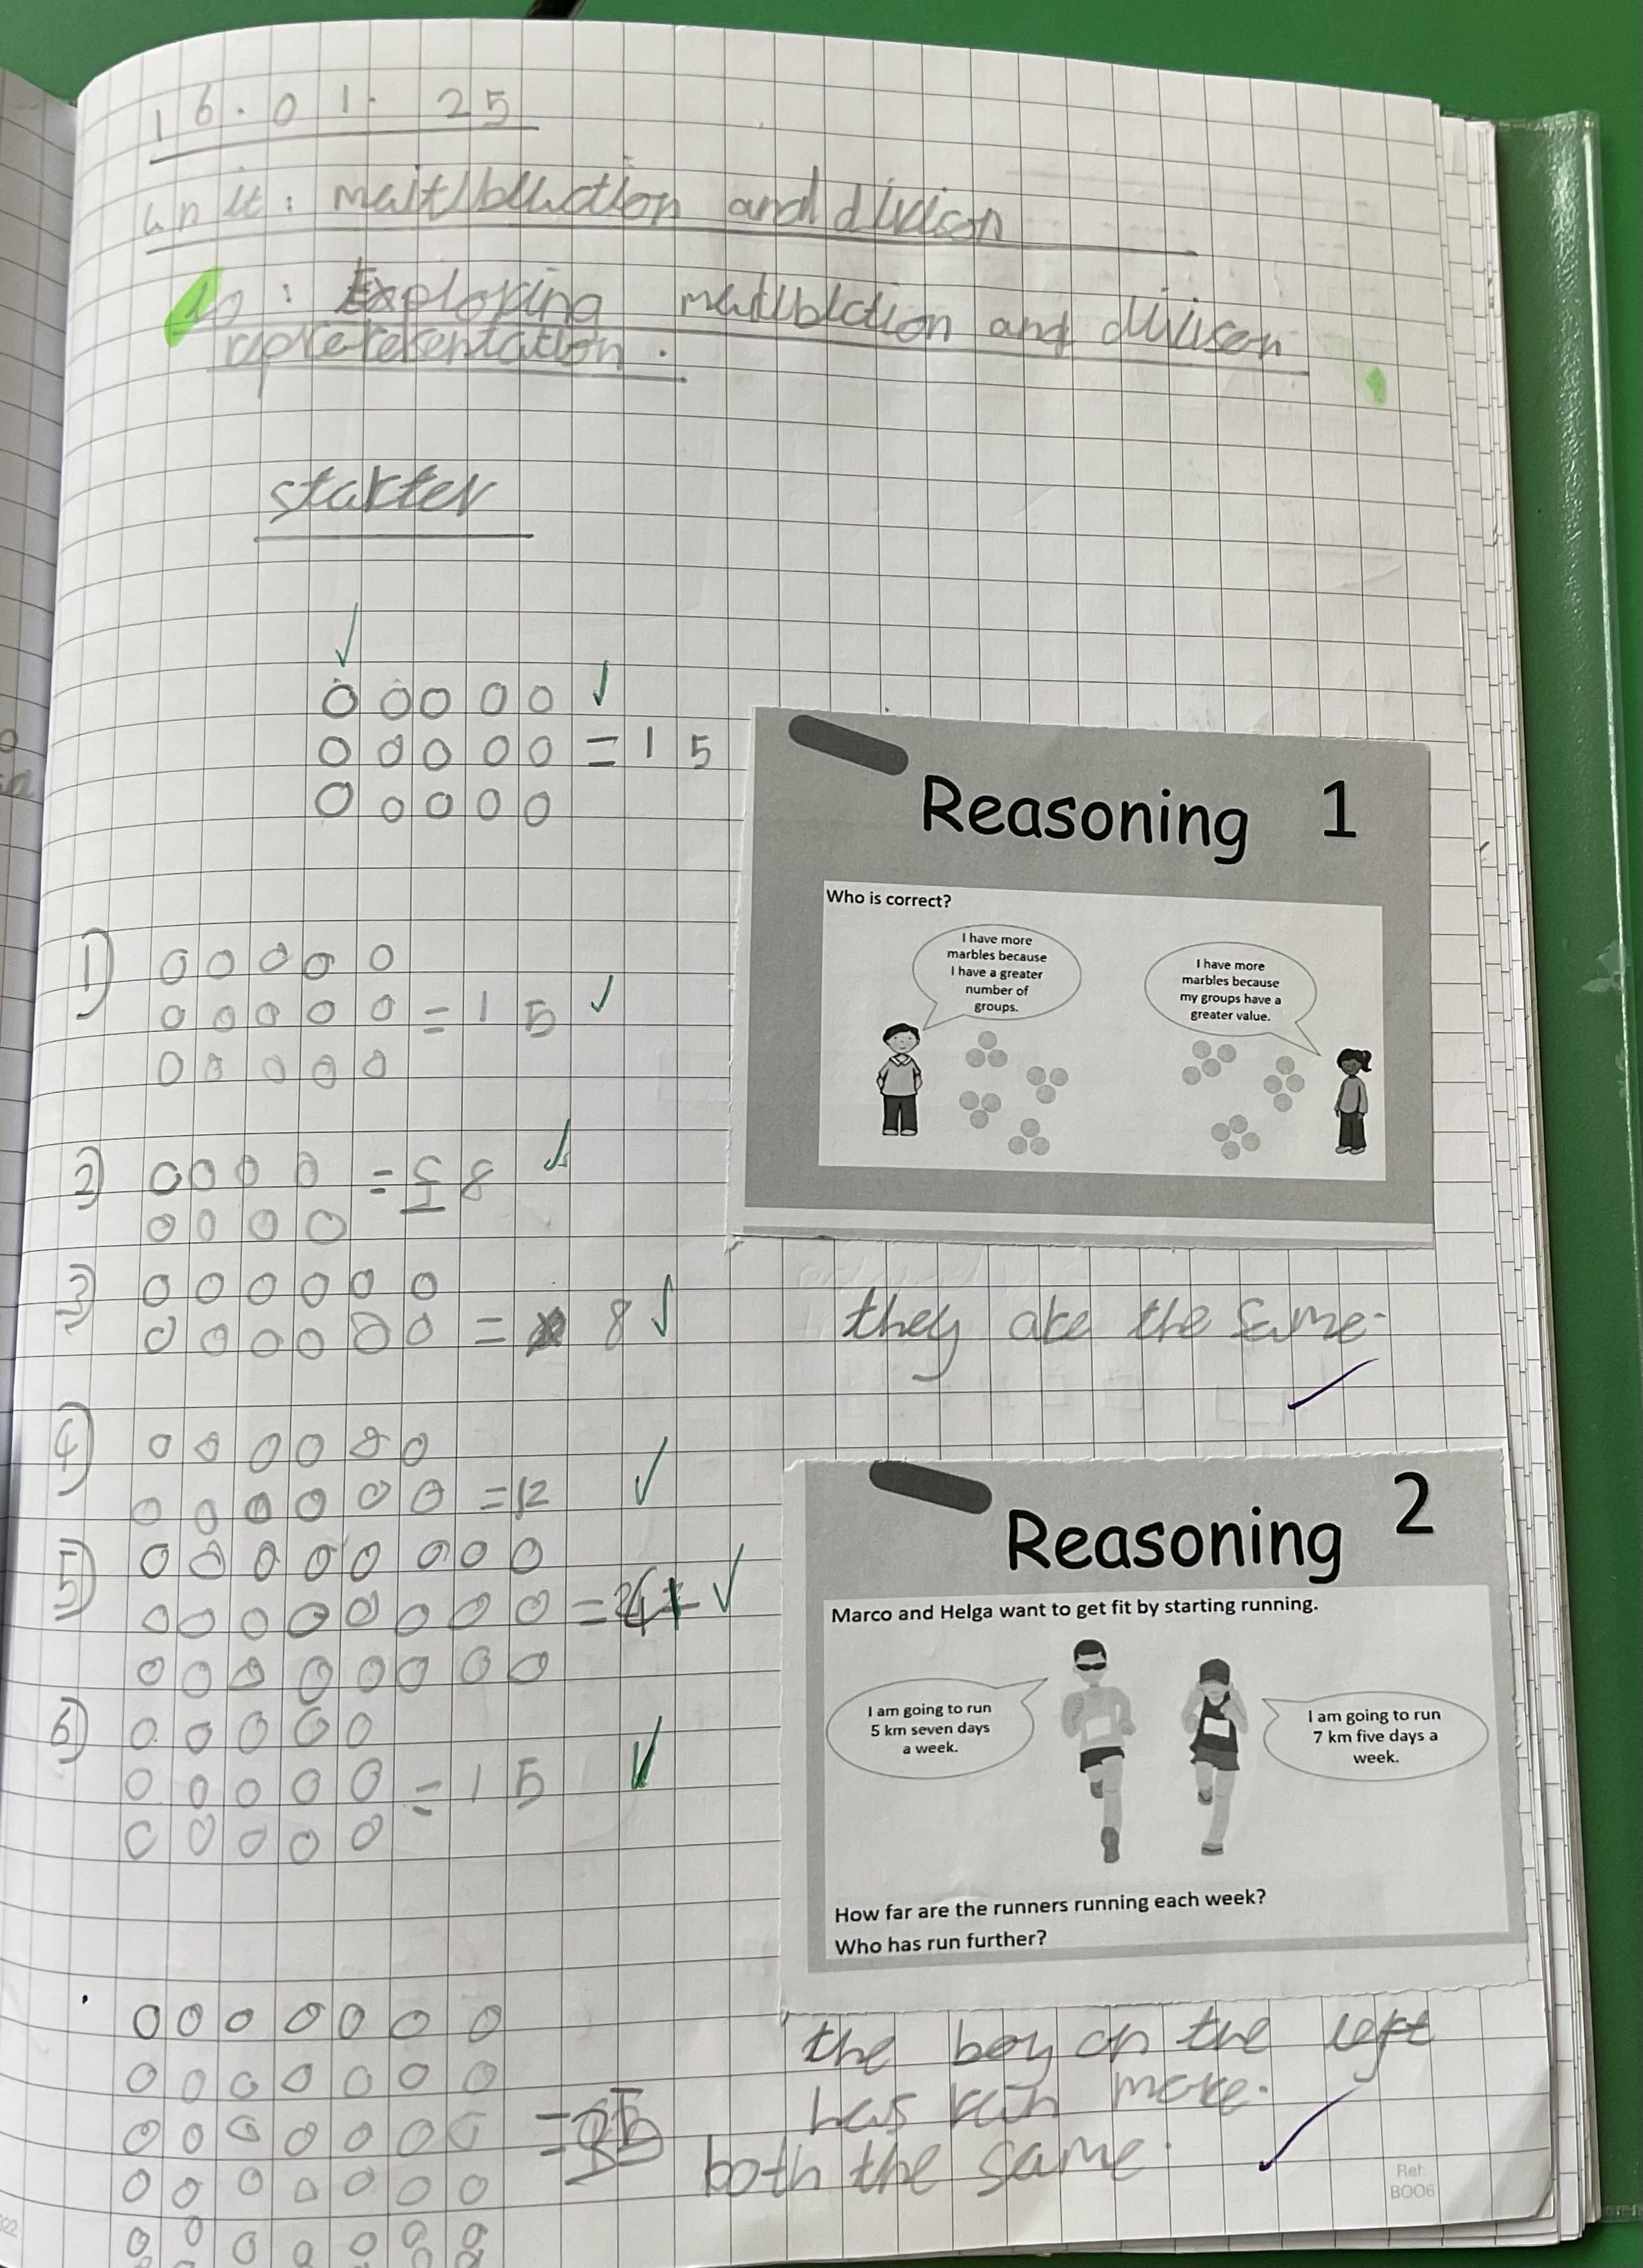 16.01.25
unit: meitlblluction and divison
Lo: Exploring meitlblction and divison
repreteresentation.
starter
= 15
1)
= 15
2) = 8
3)
= 8
4)
= 12
5)
= 24
6)
= 15
Reasoning 1
Who is correct?
I have more
marbles because
I have a greater
number of
groups.
I have more
marbles because
my groups have a
greater value.
they are the same.
Reasoning 2
Marco and Helga want to get fit by starting running.
I am going to run
5 km seven days
a week.
I am going to run
7 km five days a
week.
How far are the runners running each week?
Who has run further?
the boy on the left
has run more.
= 35
both the same.
Ref:
BOO6